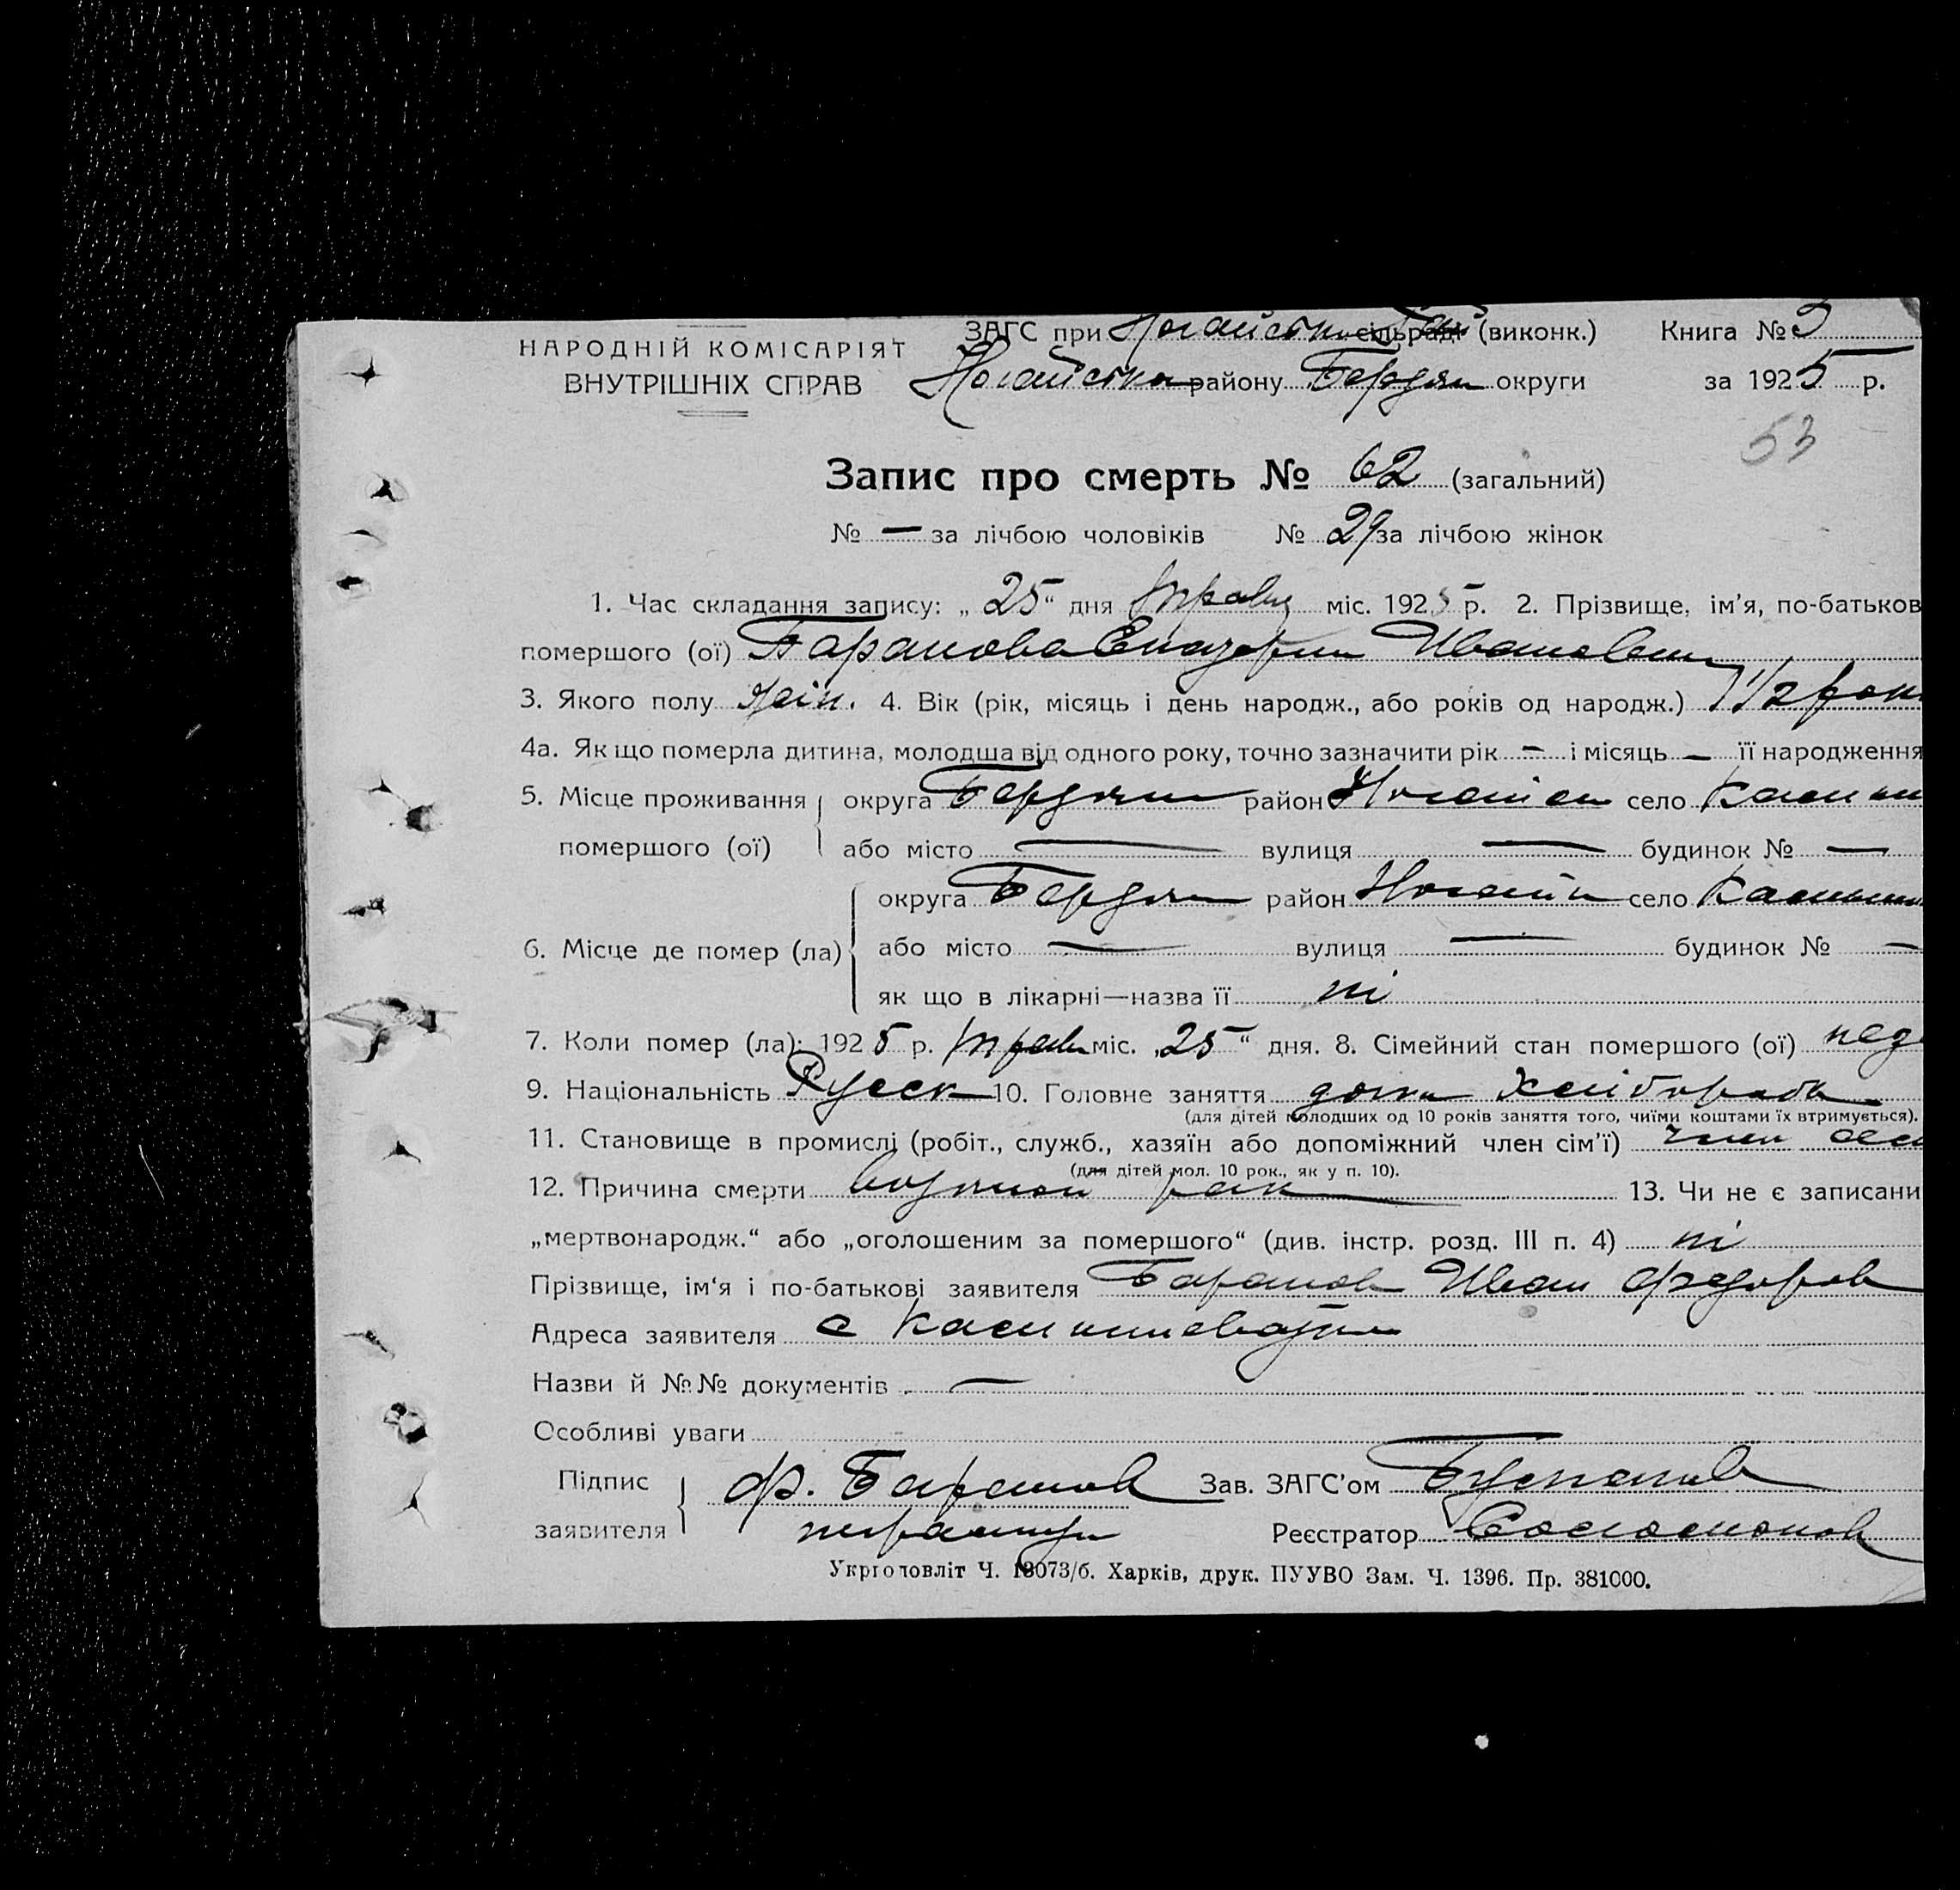 НАРОДНІЙ КОМІСАРІЯТ
ВНУТРІШНІХ СПРАВ
ЗАГС при сільраді (виконк.) Книга №
району Бердян округи за 1925 р.
53
Запис про смерть № 62 (загальний)
№ — за лічбою чоловіків № 29 за лічбою жінок
1. Час складання запису: „25“ дня травц міс. 1925 р. 2. Прізвище, ім'я, по-батькові
помершого (ої) Баранова
3. Якого полу жін. 4. Вік (рік, місяць і день народж., або років од народж.) 1 1/2 роки
4а. Як що померла дитина, молодша від одного року, точно зазначити рік — і місяць — її народження
5. Місце проживання округа Бердян район село
помершого (ої) або місто — вулиця — будинок № —
6. Місце де помер (ла) округа Бердян район село
або місто — вулиця — будинок № —
як що в лікарні—назва її ні
7. Коли помер (ла): 1925 р. трав міс. „25“ дня. 8. Сімейний стан помершого (ої)
9. Національність Русск 10. Головне заняття дочка хлібороба
(для дітей молодших од 10 років заняття того, чиїми коштами їх втримується).
11. Становище в промислі (робіт., служб., хазяїн або допоміжний член сім'ї) член
(для дітей мол. 10 рок., як у п. 10).
12. Причина смерти рак 13. Чи не є записани
„мертвонародж.“ або „оголошеним за помершого“ (див. інстр. розд. III п. 4) ні
Прізвище, ім'я і по-батькові заявителя Баранов Иван Федоров
Адреса заявителя с
Назви й №№ документів —
Особливі уваги
Підпис
заявителя
Ф. Баранов Зав. ЗАГС'ом
Реєстратор
Укрголовліт Ч. 13073/б. Харків, друк. ПУУВО Зам. Ч. 1396. Пр. 381000.